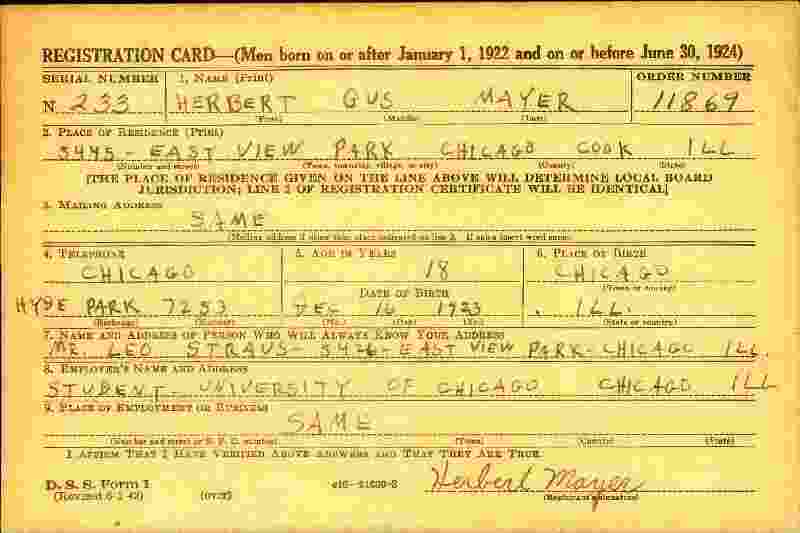 REGISTRATION CARD—(Men born on or after January 1, 1922 and on or before June 30, 1924)
SERIAL NUMBER 1. NAME (Print) ORDER NUMBER
N 233 HERBERT GUS MAYER 11869
(First) (Middle) (Last)
2. PLACE OF RESIDENCE (Print)
5445 - EAST VIEW PARK CHICAGO COOK ILL
(Number and street) (Town, township, village, or city) (County) (State)
[THE PLACE OF RESIDENCE GIVEN ON THE LINE ABOVE WILL DETERMINE LOCAL BOARD
JURISDICTION; LINE 2 OF REGISTRATION CERTIFICATE WILL BE IDENTICAL]
3. MAILING ADDRESS
SAME
(Mailing address if other than place indicated on line 2. If same insert word same)
4. TELEPHONE 5. AGE IN YEARS 6. PLACE OF BIRTH
CHICAGO 18 CHICAGO
DATE OF BIRTH (Town or county)
HYDE PARK 7253 DEC 16 1923 ILL.
(Exchange) (Number) (Mo.) (Day) (Yr.) (State or country)
7. NAME AND ADDRESS OF PERSON WHO WILL ALWAYS KNOW YOUR ADDRESS
MR. LEO STRAUS - 5426 - EAST VIEW PARK - CHICAGO ILL.
8. EMPLOYER'S NAME AND ADDRESS
STUDENT - UNIVERSITY OF CHICAGO CHICAGO ILL
9. PLACE OF EMPLOYMENT OR BUSINESS
SAME
(Number and street or R. F. D. number) (Town) (County) (State)
I AFFIRM THAT I HAVE VERIFIED ABOVE ANSWERS AND THAT THEY ARE TRUE.
D. S. S. Form 1 Herbert Mayer
(Revised 6-1-42) (over) (Registrant's signature)